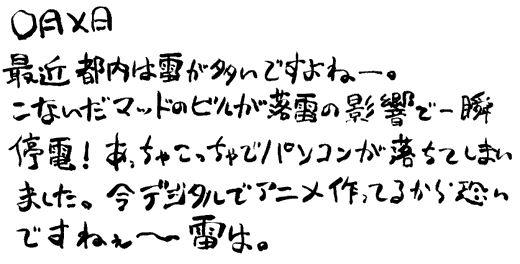 ○月×日
最近都内は雷が多いですよねー。
こないだマッドのビルが落雷の影響で一瞬
停電！あっちゃこっちゃでパソコンが落ちてしまい
ました。今デジタルでアニメ作ってるから恐い
ですねぇ〜雷は。